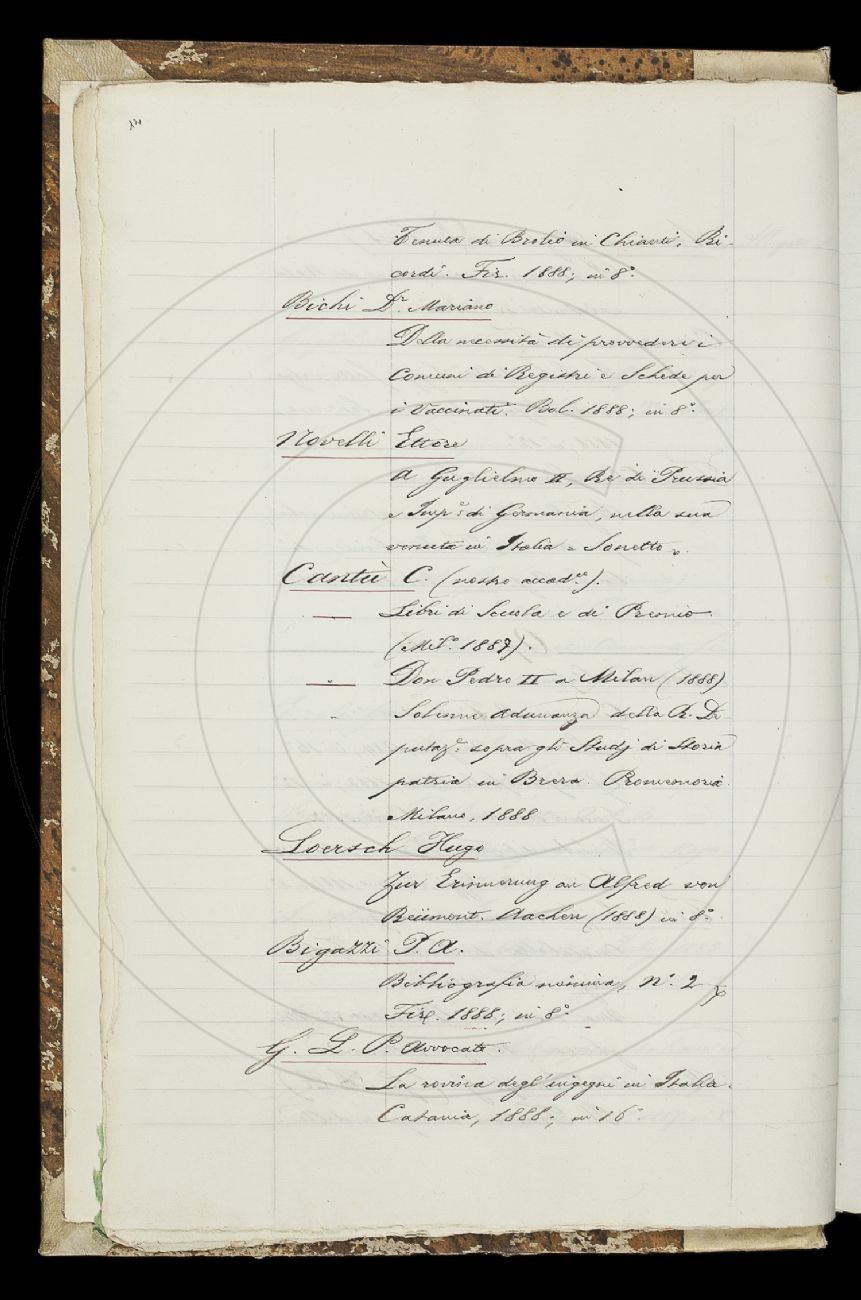 Tenuta di Brolio in Chianti, Ri-
cordi. Fir. 1888; in 8°.
Bichi Dr. Mariano
Della necessità di provvedere i
Comuni di Registri e Schede per
i Vaccinati. Bol. 1888; in 8°.
Novelli Ettore
A Guglielmo II, Re di Prussia
e Imp.e di Germania, nella sua
venuta in Italia = Sonetto
Cantù C. (nostro accad.co).
— Libri di Scuola e di Premio.
(Mil.o 1887).
— Don Pedro II a Milan (1888)
" Solenne Adunanza della R. De-
putaz.e sopra gli Studj di Storia
patria in Brera. Promemoria
Milano, 1888
Loersch Hugo
Zur Erinnerung an Alfred von
Reümont. Aachen (1888) in 8°.
Bigazzi P. A.
Bibliografia minima, N.° 2
Fir. 1888; in 8°.
G. L. P. Avvocato.
La rovina degl'ingegni in Italia.
Catania, 1888; in 16°